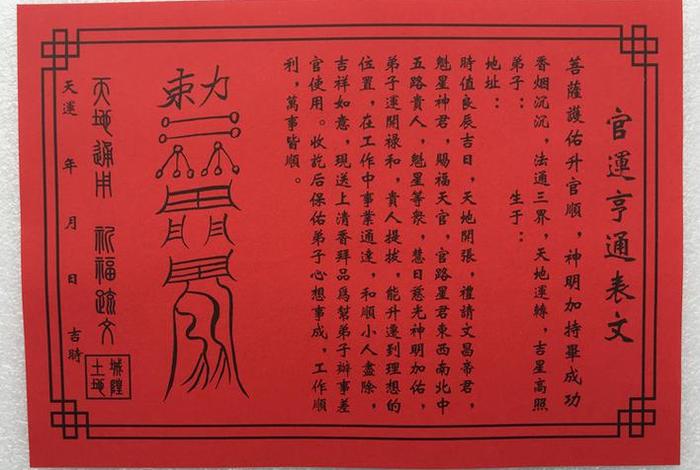 官運亨通表文
菩薩護佑升官順，神明加持畢成功
香烟沉沉，法通三界，天地運轉，吉星高照
弟子：　　　生于：
地址：
時值良辰吉日，天地開張，禮請文昌帝君，
魁星神君，賜福天官，官路星君東西南北中
五路貴人，魁星等衆，慧日慈光神明加佑，
弟子運開祿和，貴人提拔，能升遷到理想的
位置，在工作中事業通達，和順小人盡除，
吉祥如意，現送上清香拜品爲幫弟子辦事差
官使用。收訖后保佑弟子心想事成，工作順
利，萬事皆順。
勅
天地通用　祈福疏文
城隍
土地
天運　年　月　日　吉時